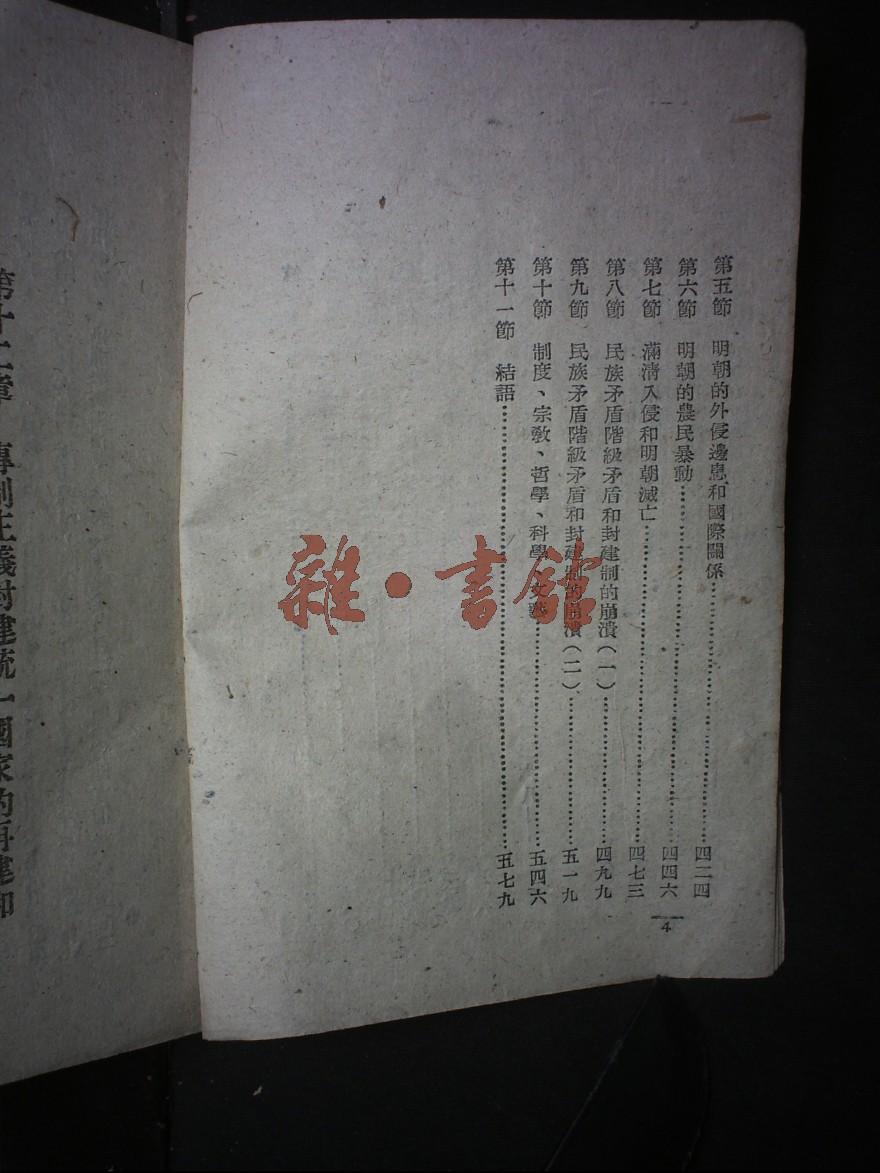 第五節　明朝的外侵邊患和國際關係……四二四
第六節　明朝的農民暴動……四四六
第七節　滿清入侵和明朝滅亡……四七三
第八節　民族矛盾階級矛盾和封建制的崩潰（一）……四九九
第九節　民族矛盾階級矛盾和封建制的崩潰（二）……五一九
第十節　制度、宗教、哲學、科學、文藝……五四六
第十一節　結語……五七九
4
專制主義封建統一國家的再建和
雜·書館